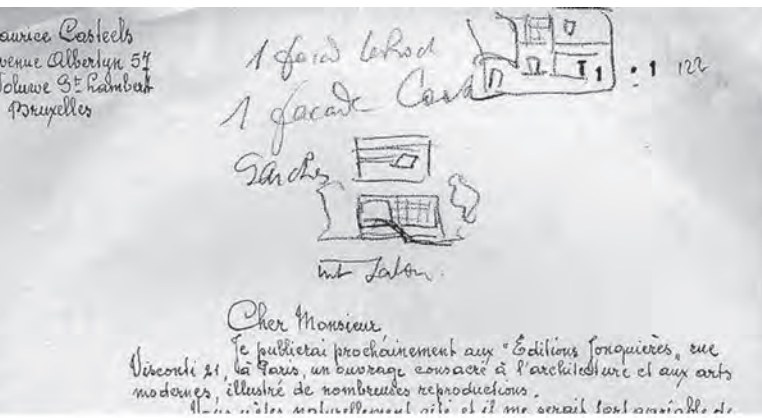 Maurice Casteels
Avenue Albertyn 57
Woluwe St Lambert
Bruxelles
1 façade
1 façade
Garches
int Salon
122
Cher Monsieur
Je publierai prochainement aux "Editions Jonquières, rue
Visconti 21, à Paris, un ouvrage consacré à l'architecture et aux arts
modernes, illustré de nombreuses reproductions.
Vous y êtes naturellement cité et il me serait fort agréable de